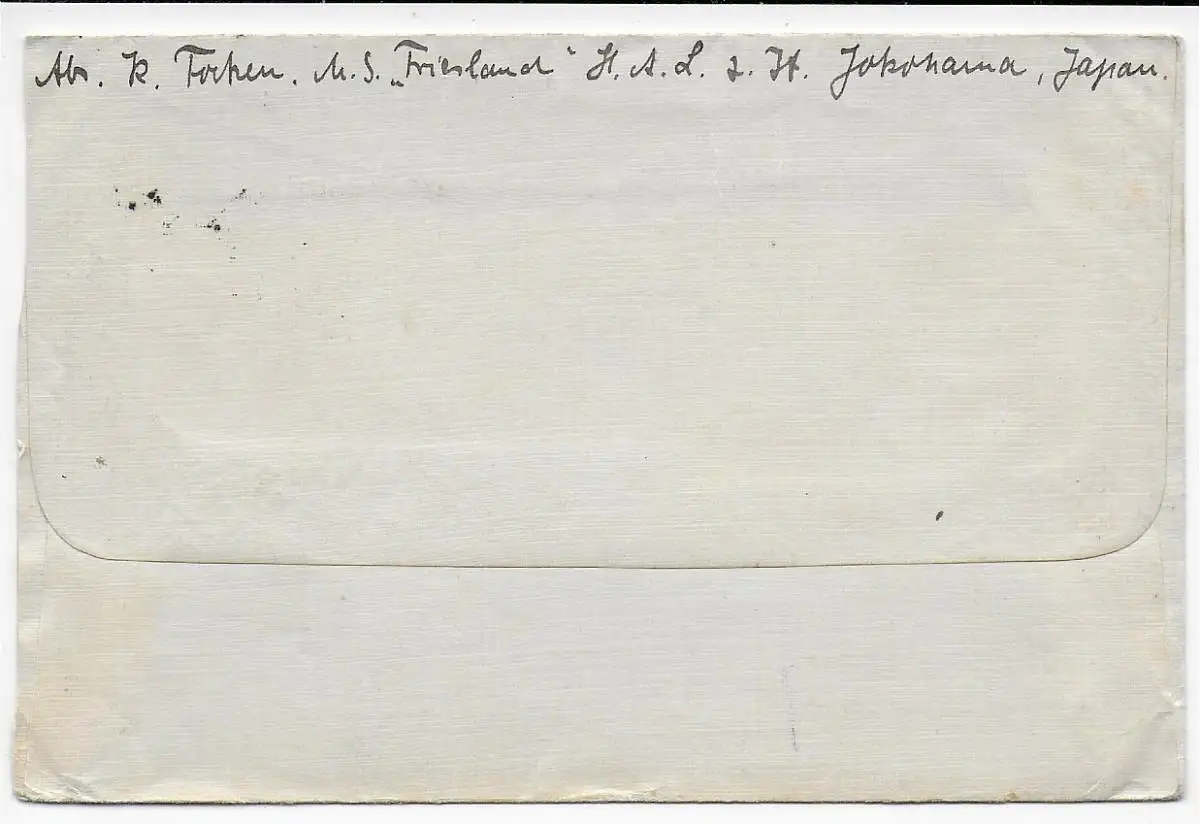 Abs. K. Focken. M.S. „Friesland“ H.A.L. z. Zt. Jokohama, Japan.